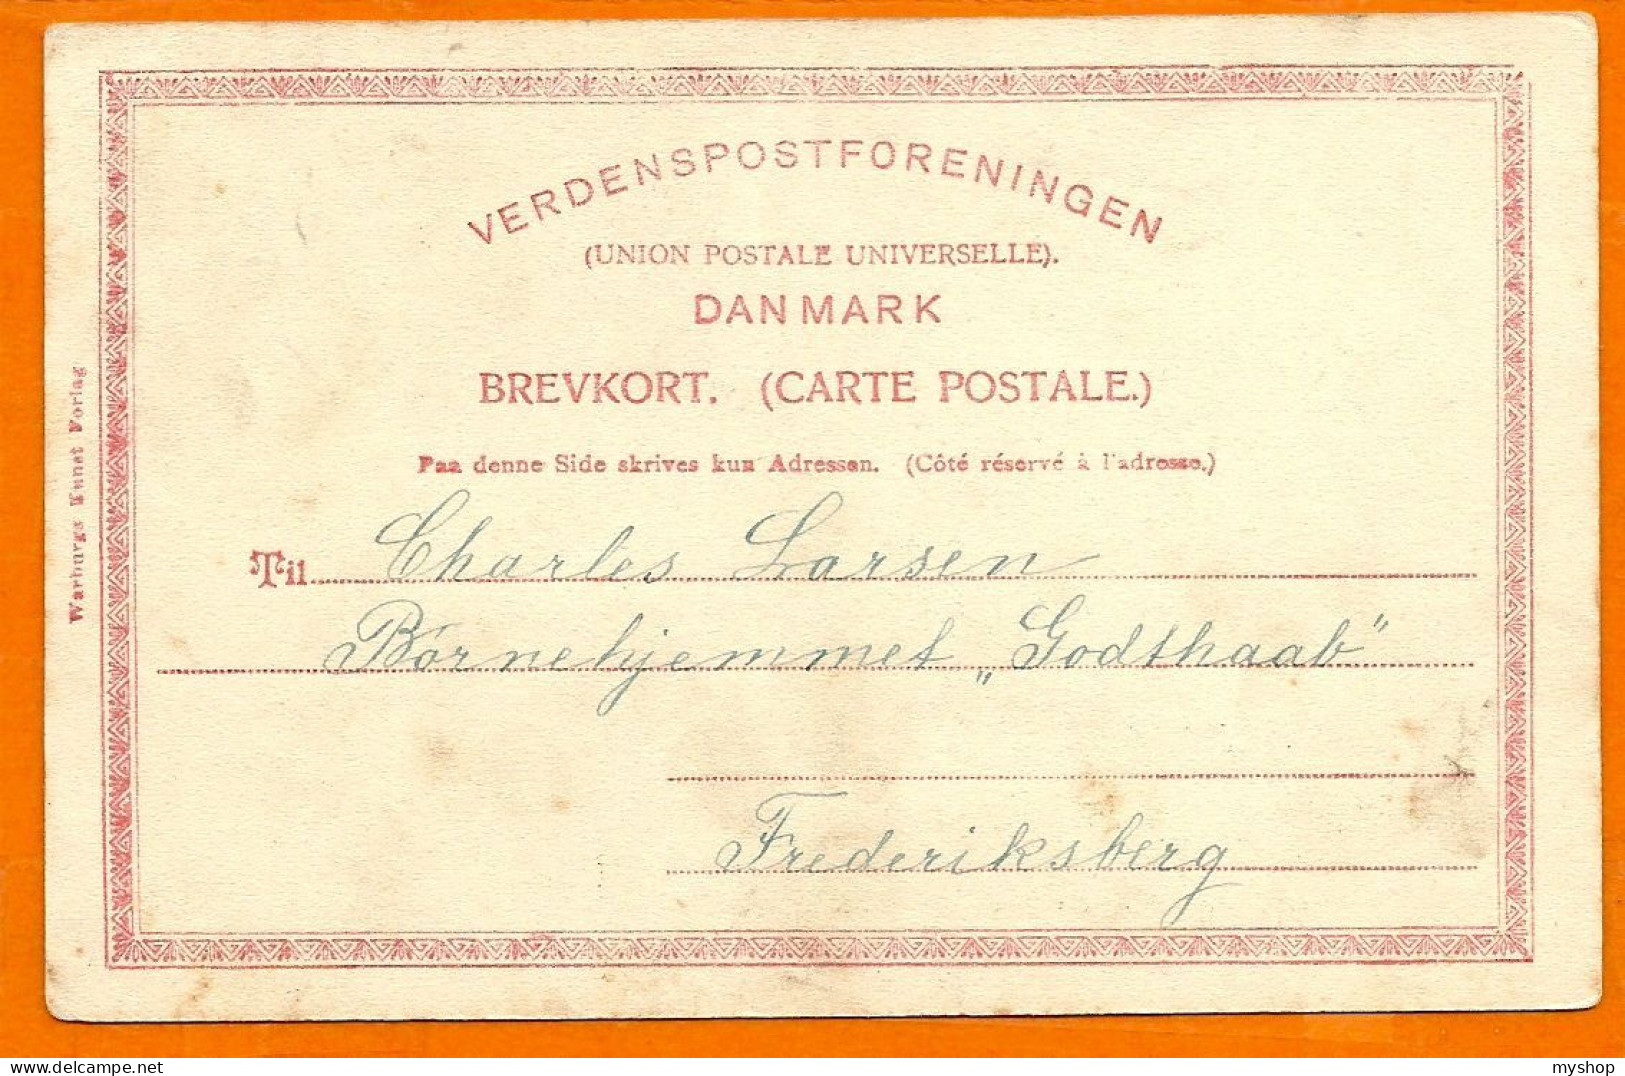 VERDENSPOSTFORENINGEN
(UNION POSTALE UNIVERSELLE).
DANMARK
BREVKORT. (CARTE POSTALE.)
Paa denne Side skrives kun Adressen. (Côté réservé à l'adresse.)
Til Charles Larsen
Børnehjemmet „Godthaab"
Frederiksberg
Warburgs Kunst Forlag
myshop